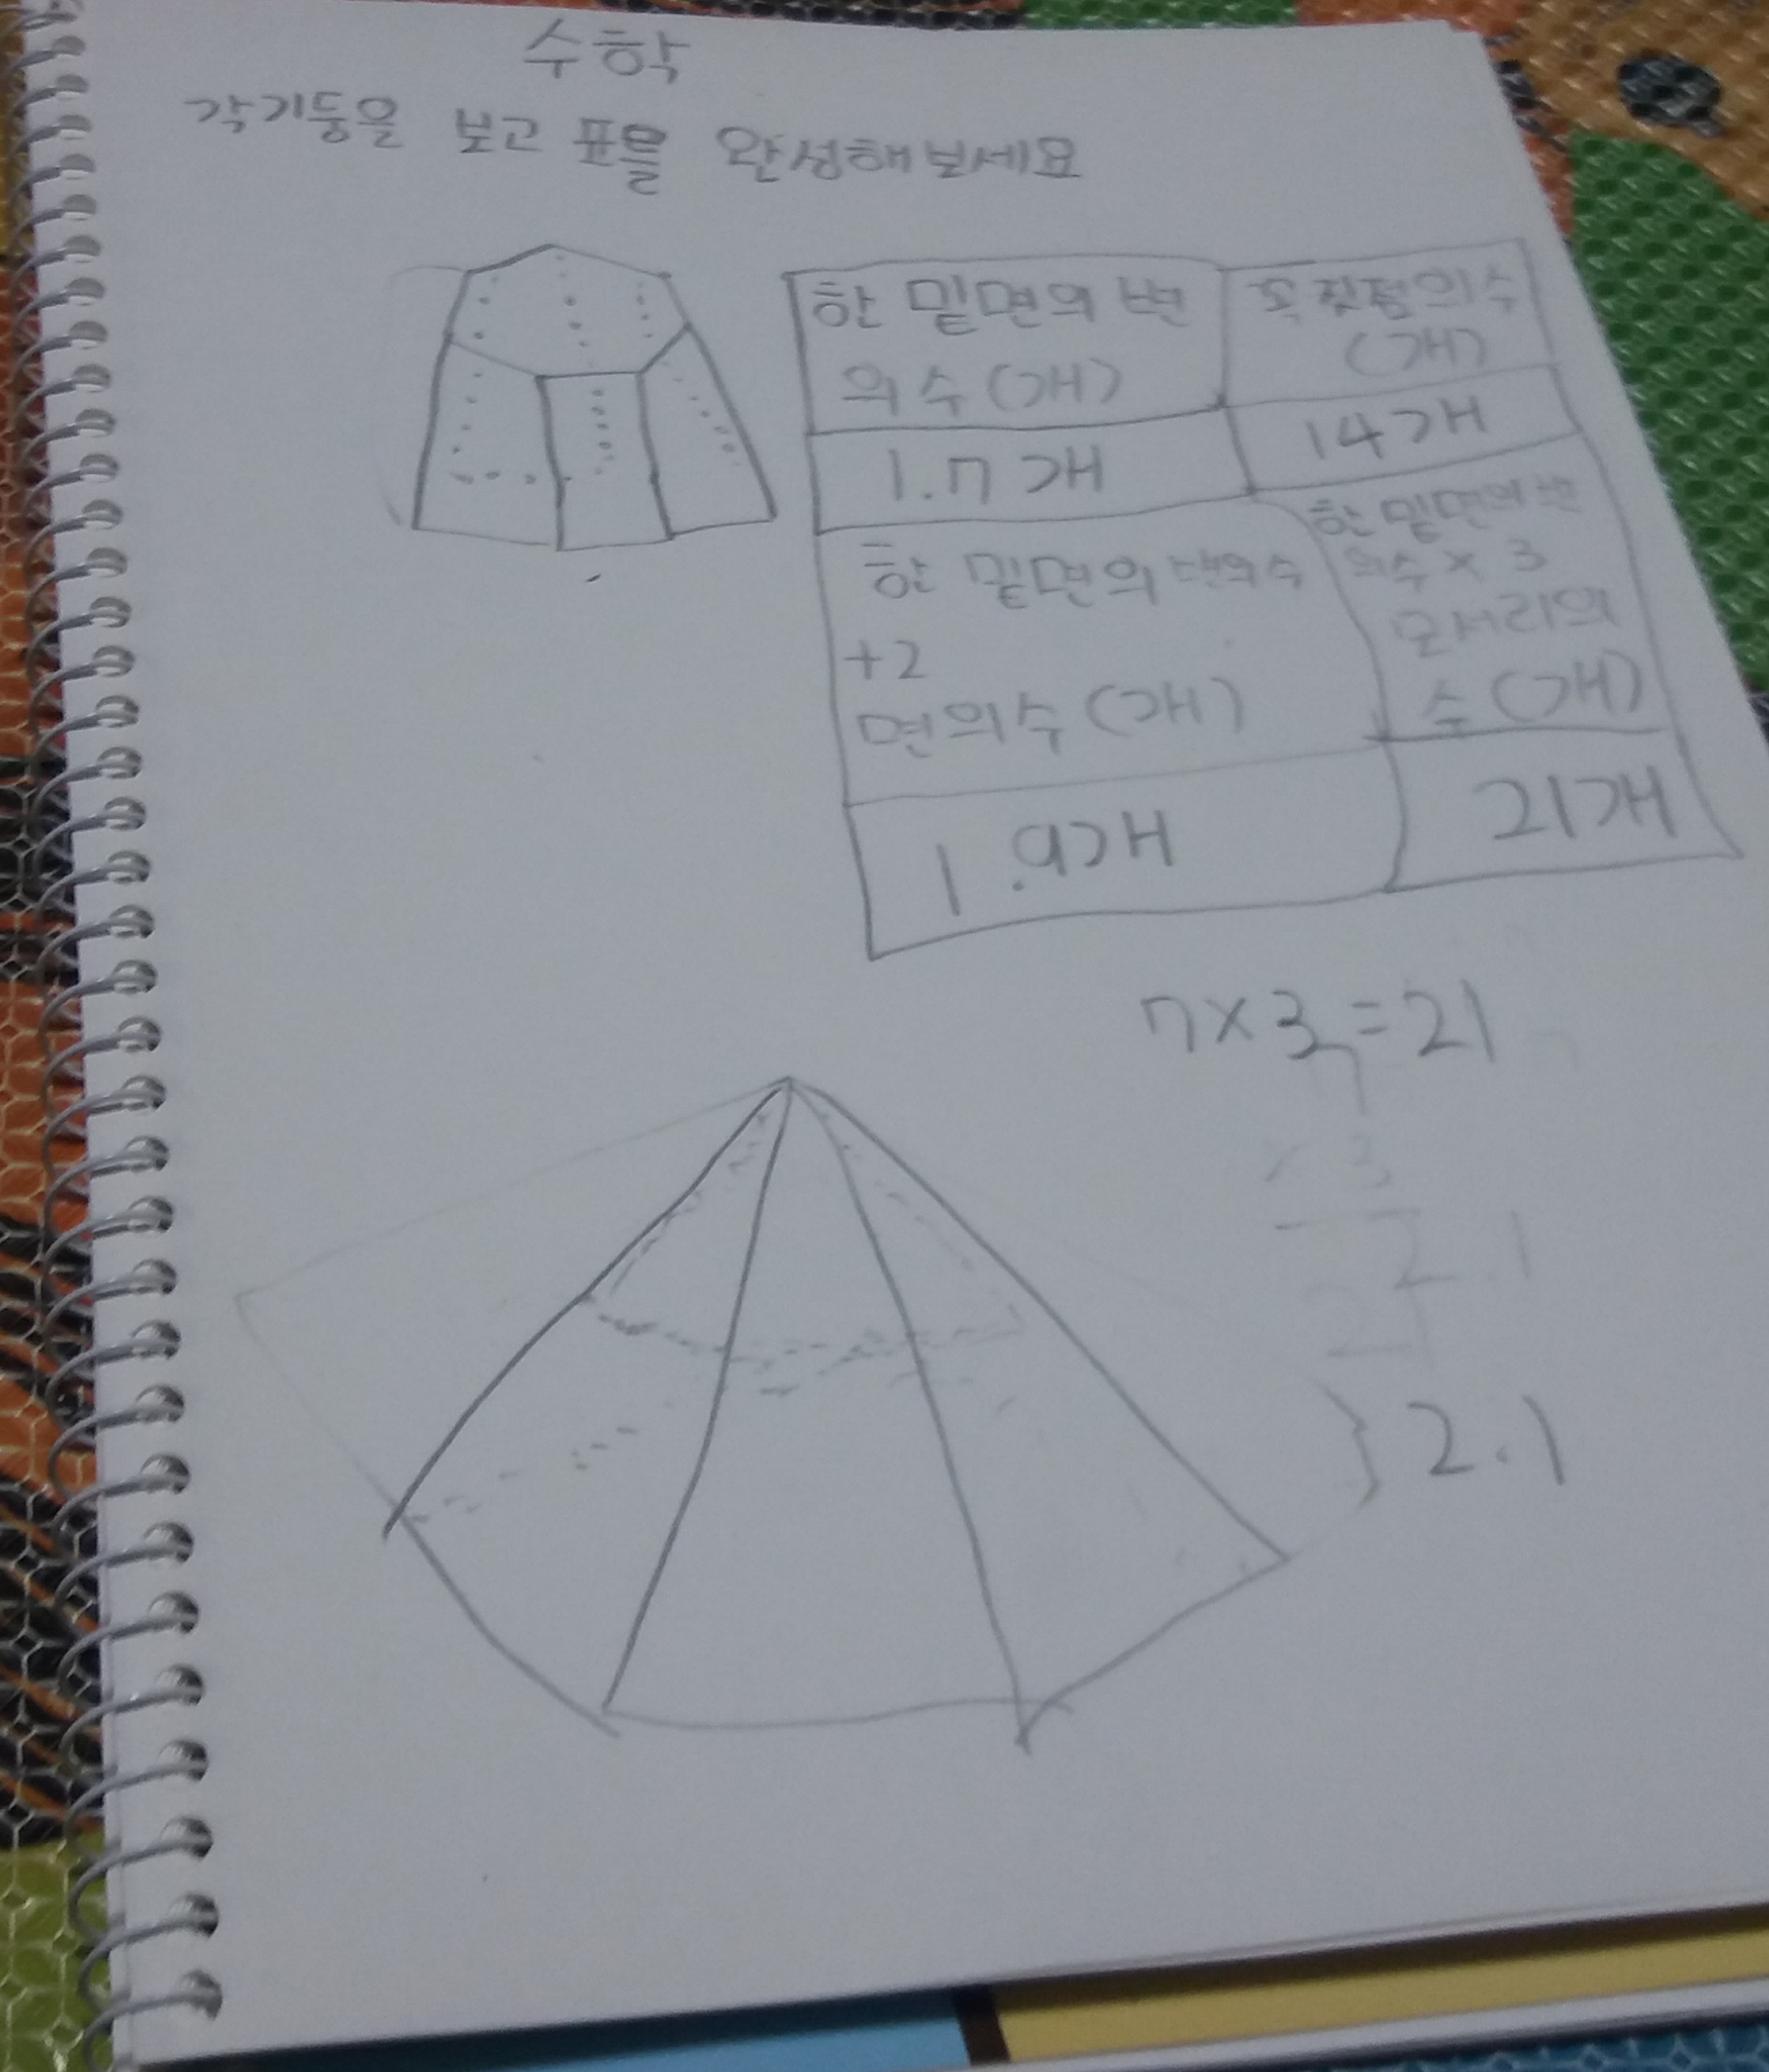 수학
각기둥을 보고 표를 완성해보세요
한 밑면의 변
의 수 (개)
꼭짓점의 수
(개)
1.7개
14개
한 밑면의 변의 수
+2
면의 수 (개)
한 밑면의 변
의 수 × 3
모서리의
수 (개)
1.9개
21개
7×3=21
×3
2.1
21
}2.1